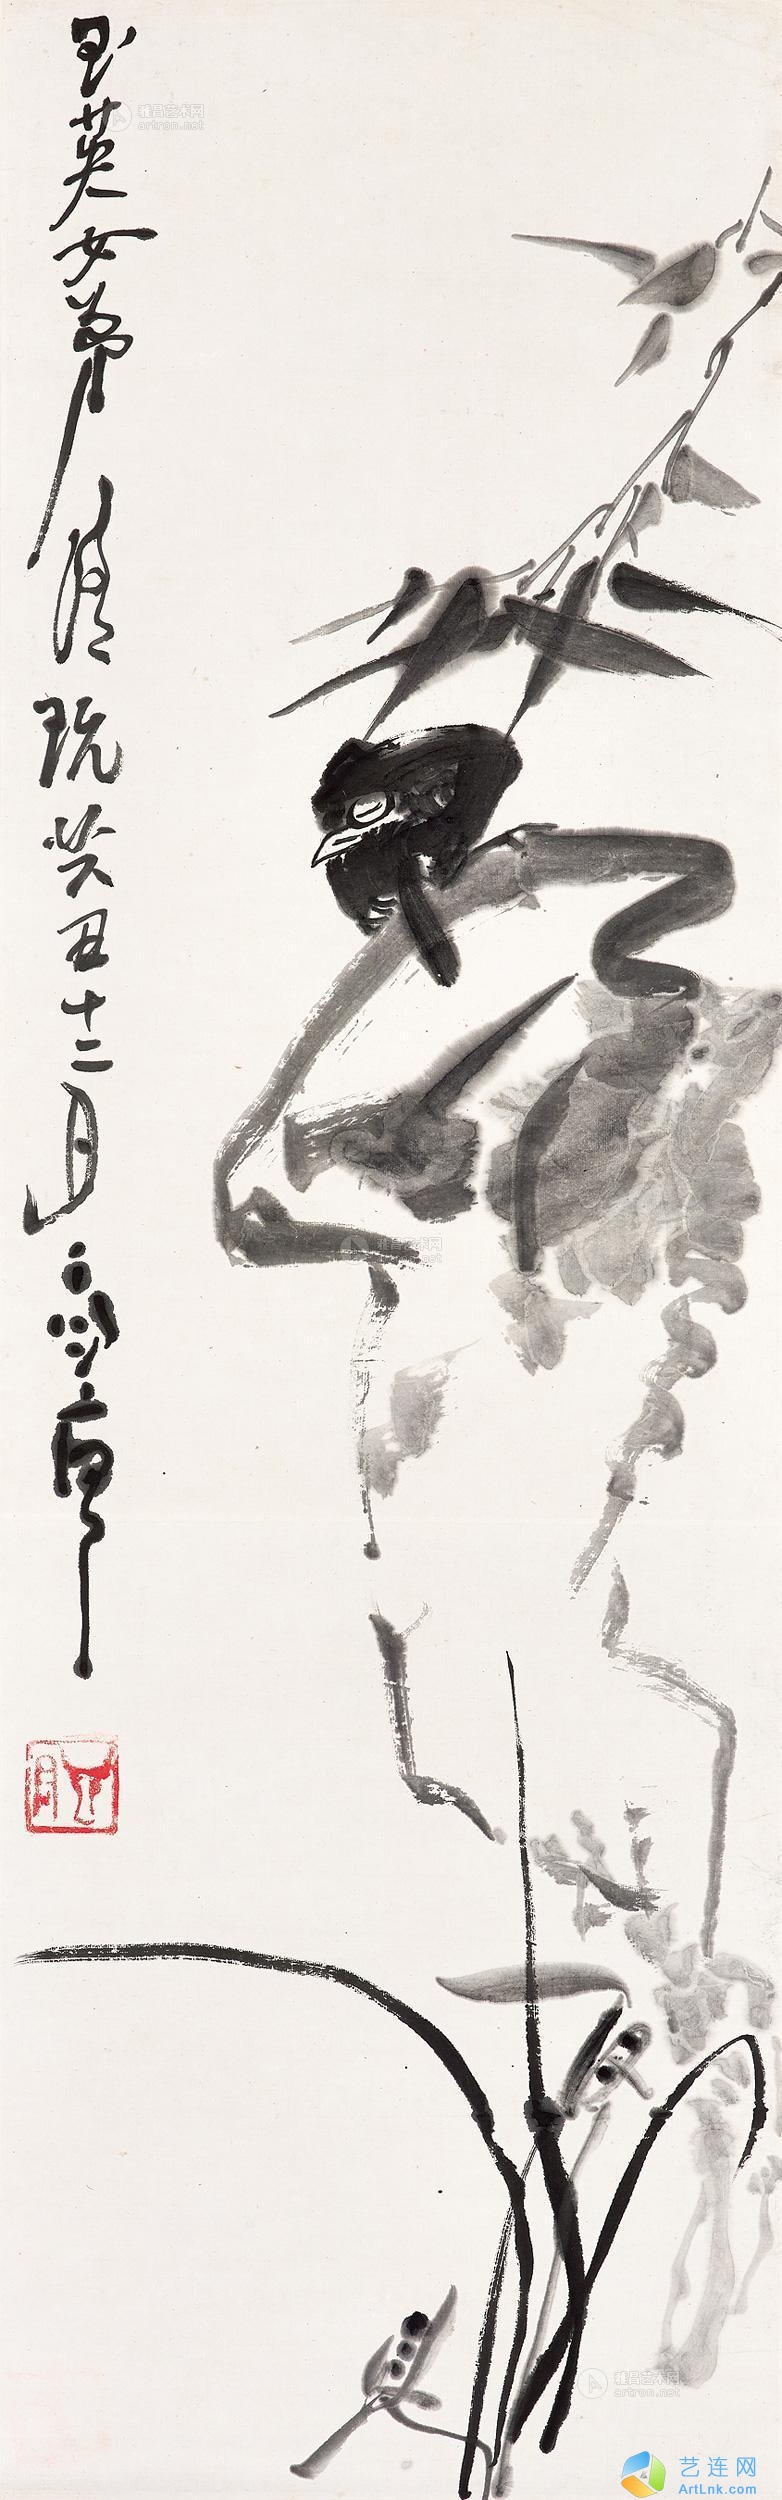 玉英女弟清玩癸丑十二月高庸
雅昌艺术网
artron.net
雅昌艺术网
artron.net
雅昌艺术网
artron.net
艺连网
ArtLnk.com